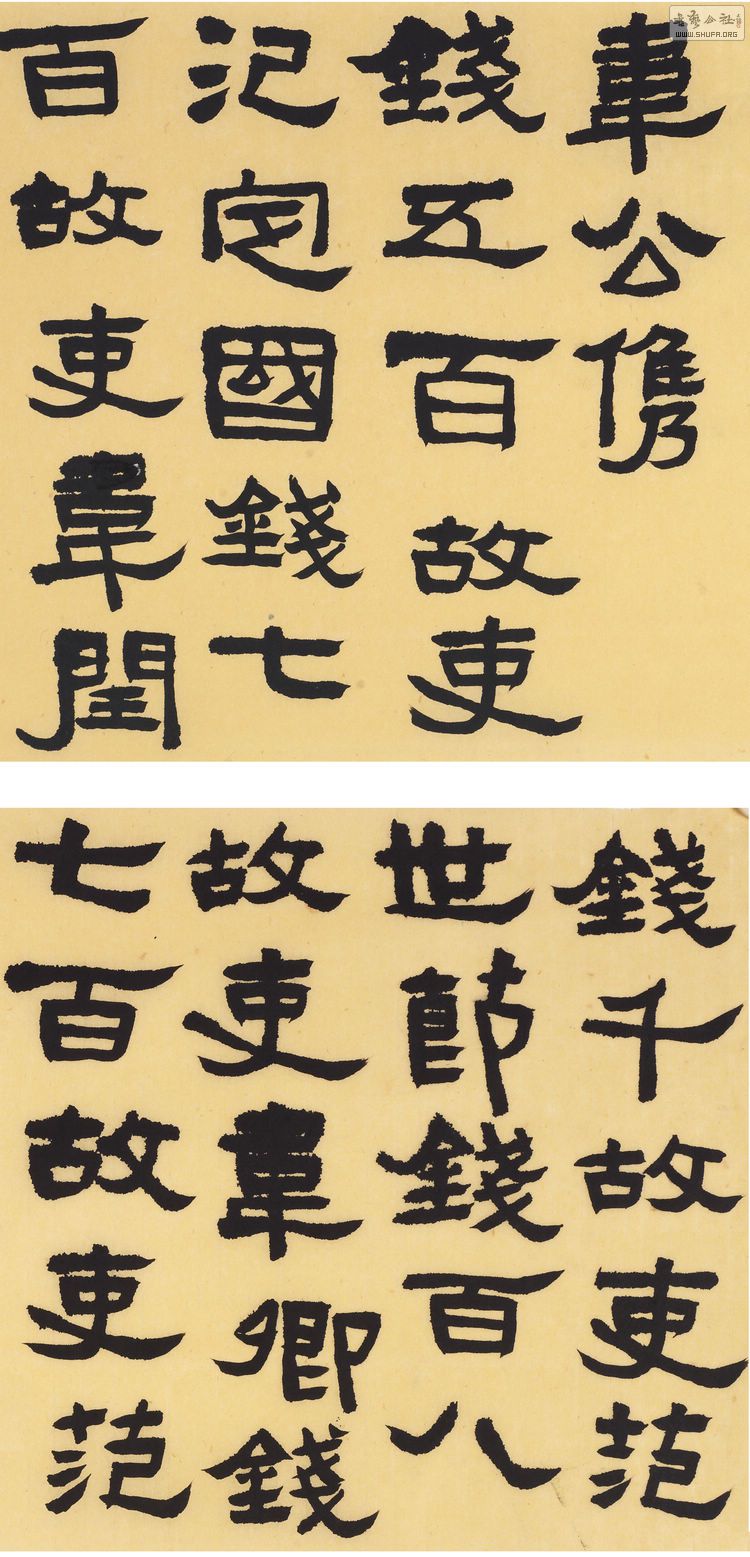 韋公儁
錢五百故吏
氾定國錢七
百故吏韋閏
錢千故吏范
世節錢百八
故吏韋卿錢
七百故吏范
书艺公社
WWW.SHUFA.ORG